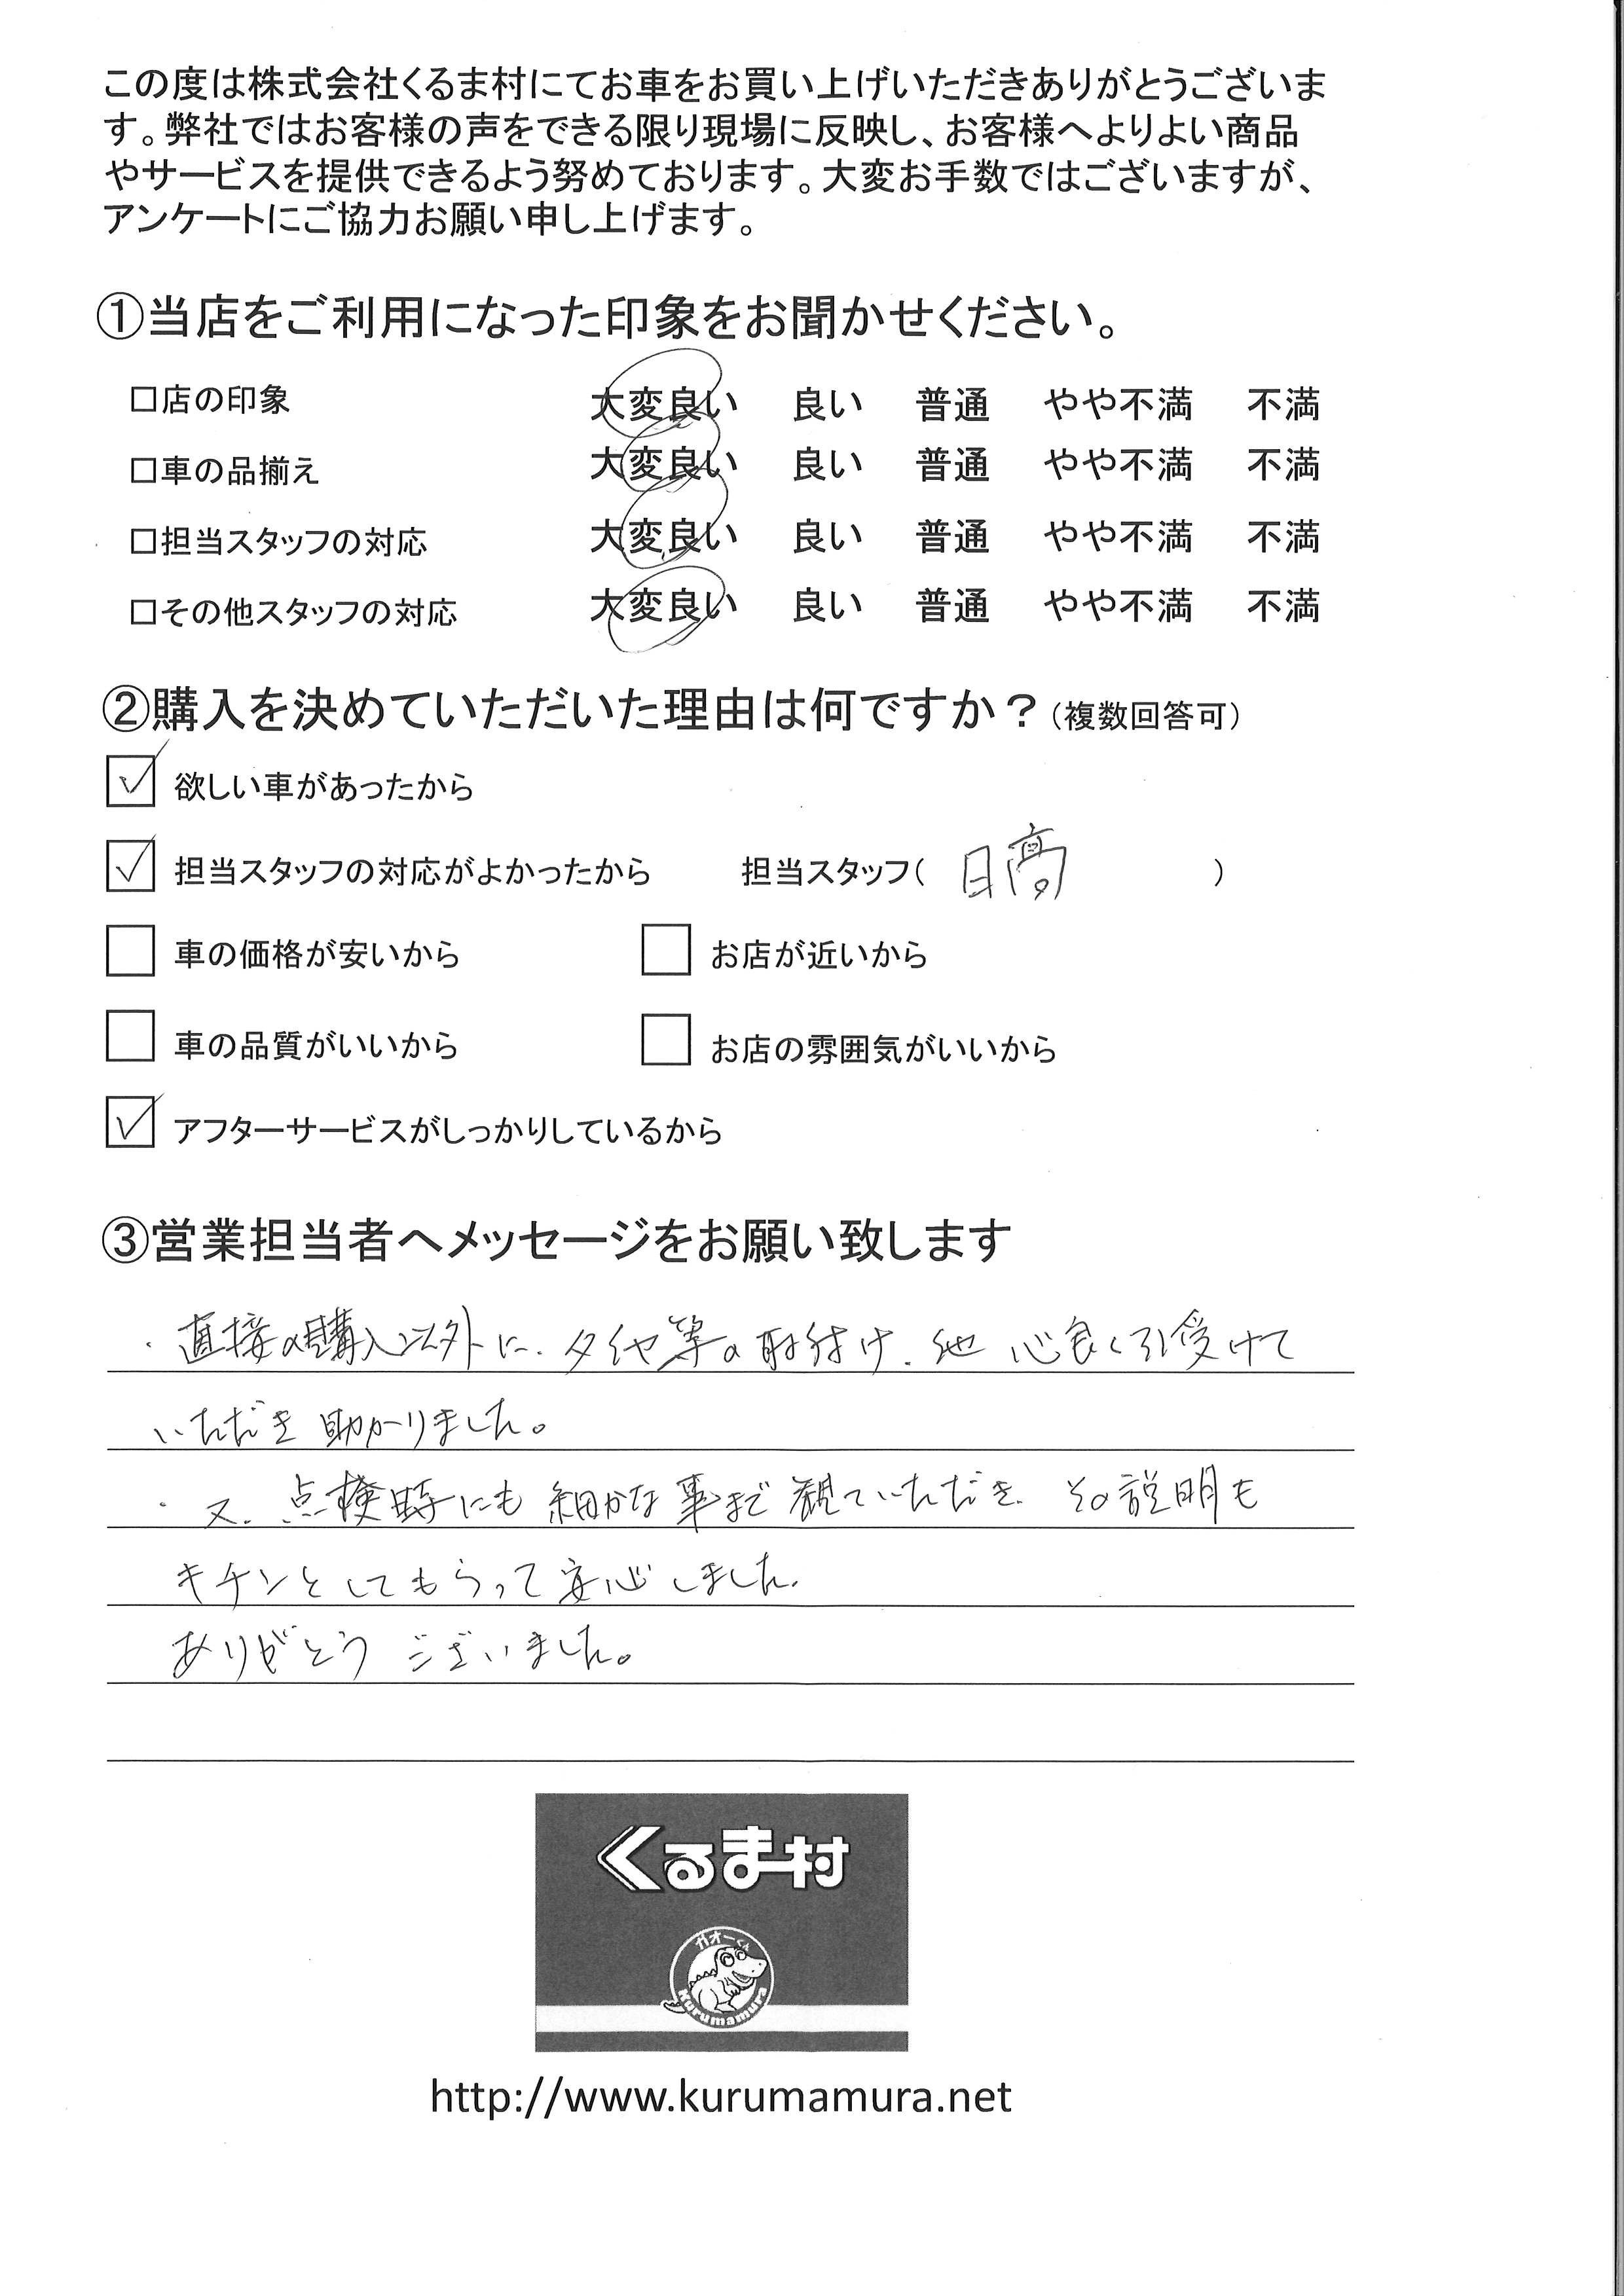 この度は株式会社くるま村にてお車をお買い上げいただきありがとうございま
す。弊社ではお客様の声をできる限り現場に反映し、お客様へよりよい商品
やサービスを提供できるよう努めております。大変お手数ではございますが、
アンケートにご協力お願い申し上げます。
①当店をご利用になった印象をお聞かせください。
□店の印象 大変良い 良い 普通 やや不満 不満
□車の品揃え 大変良い 良い 普通 やや不満 不満
□担当スタッフの対応 大変良い 良い 普通 やや不満 不満
□その他スタッフの対応 大変良い 良い 普通 やや不満 不満
②購入を決めていただいた理由は何ですか？（複数回答可）
欲しい車があったから
担当スタッフの対応がよかったから 担当スタッフ（ 日高 ）
車の価格が安いから お店が近いから
車の品質がいいから お店の雰囲気がいいから
アフターサービスがしっかりしているから
③営業担当者へメッセージをお願い致します
・直接の購入以外に、タイヤ等の取付け、他 心良く引受けて
いただき助かりました。
・又、点検時にも細かな事まで観ていただき、その説明も
キチンとしてもらって安心しました。
ありがとうございました。
くるま村
ガオーくん
Kurumamura
http://www.kurumamura.net